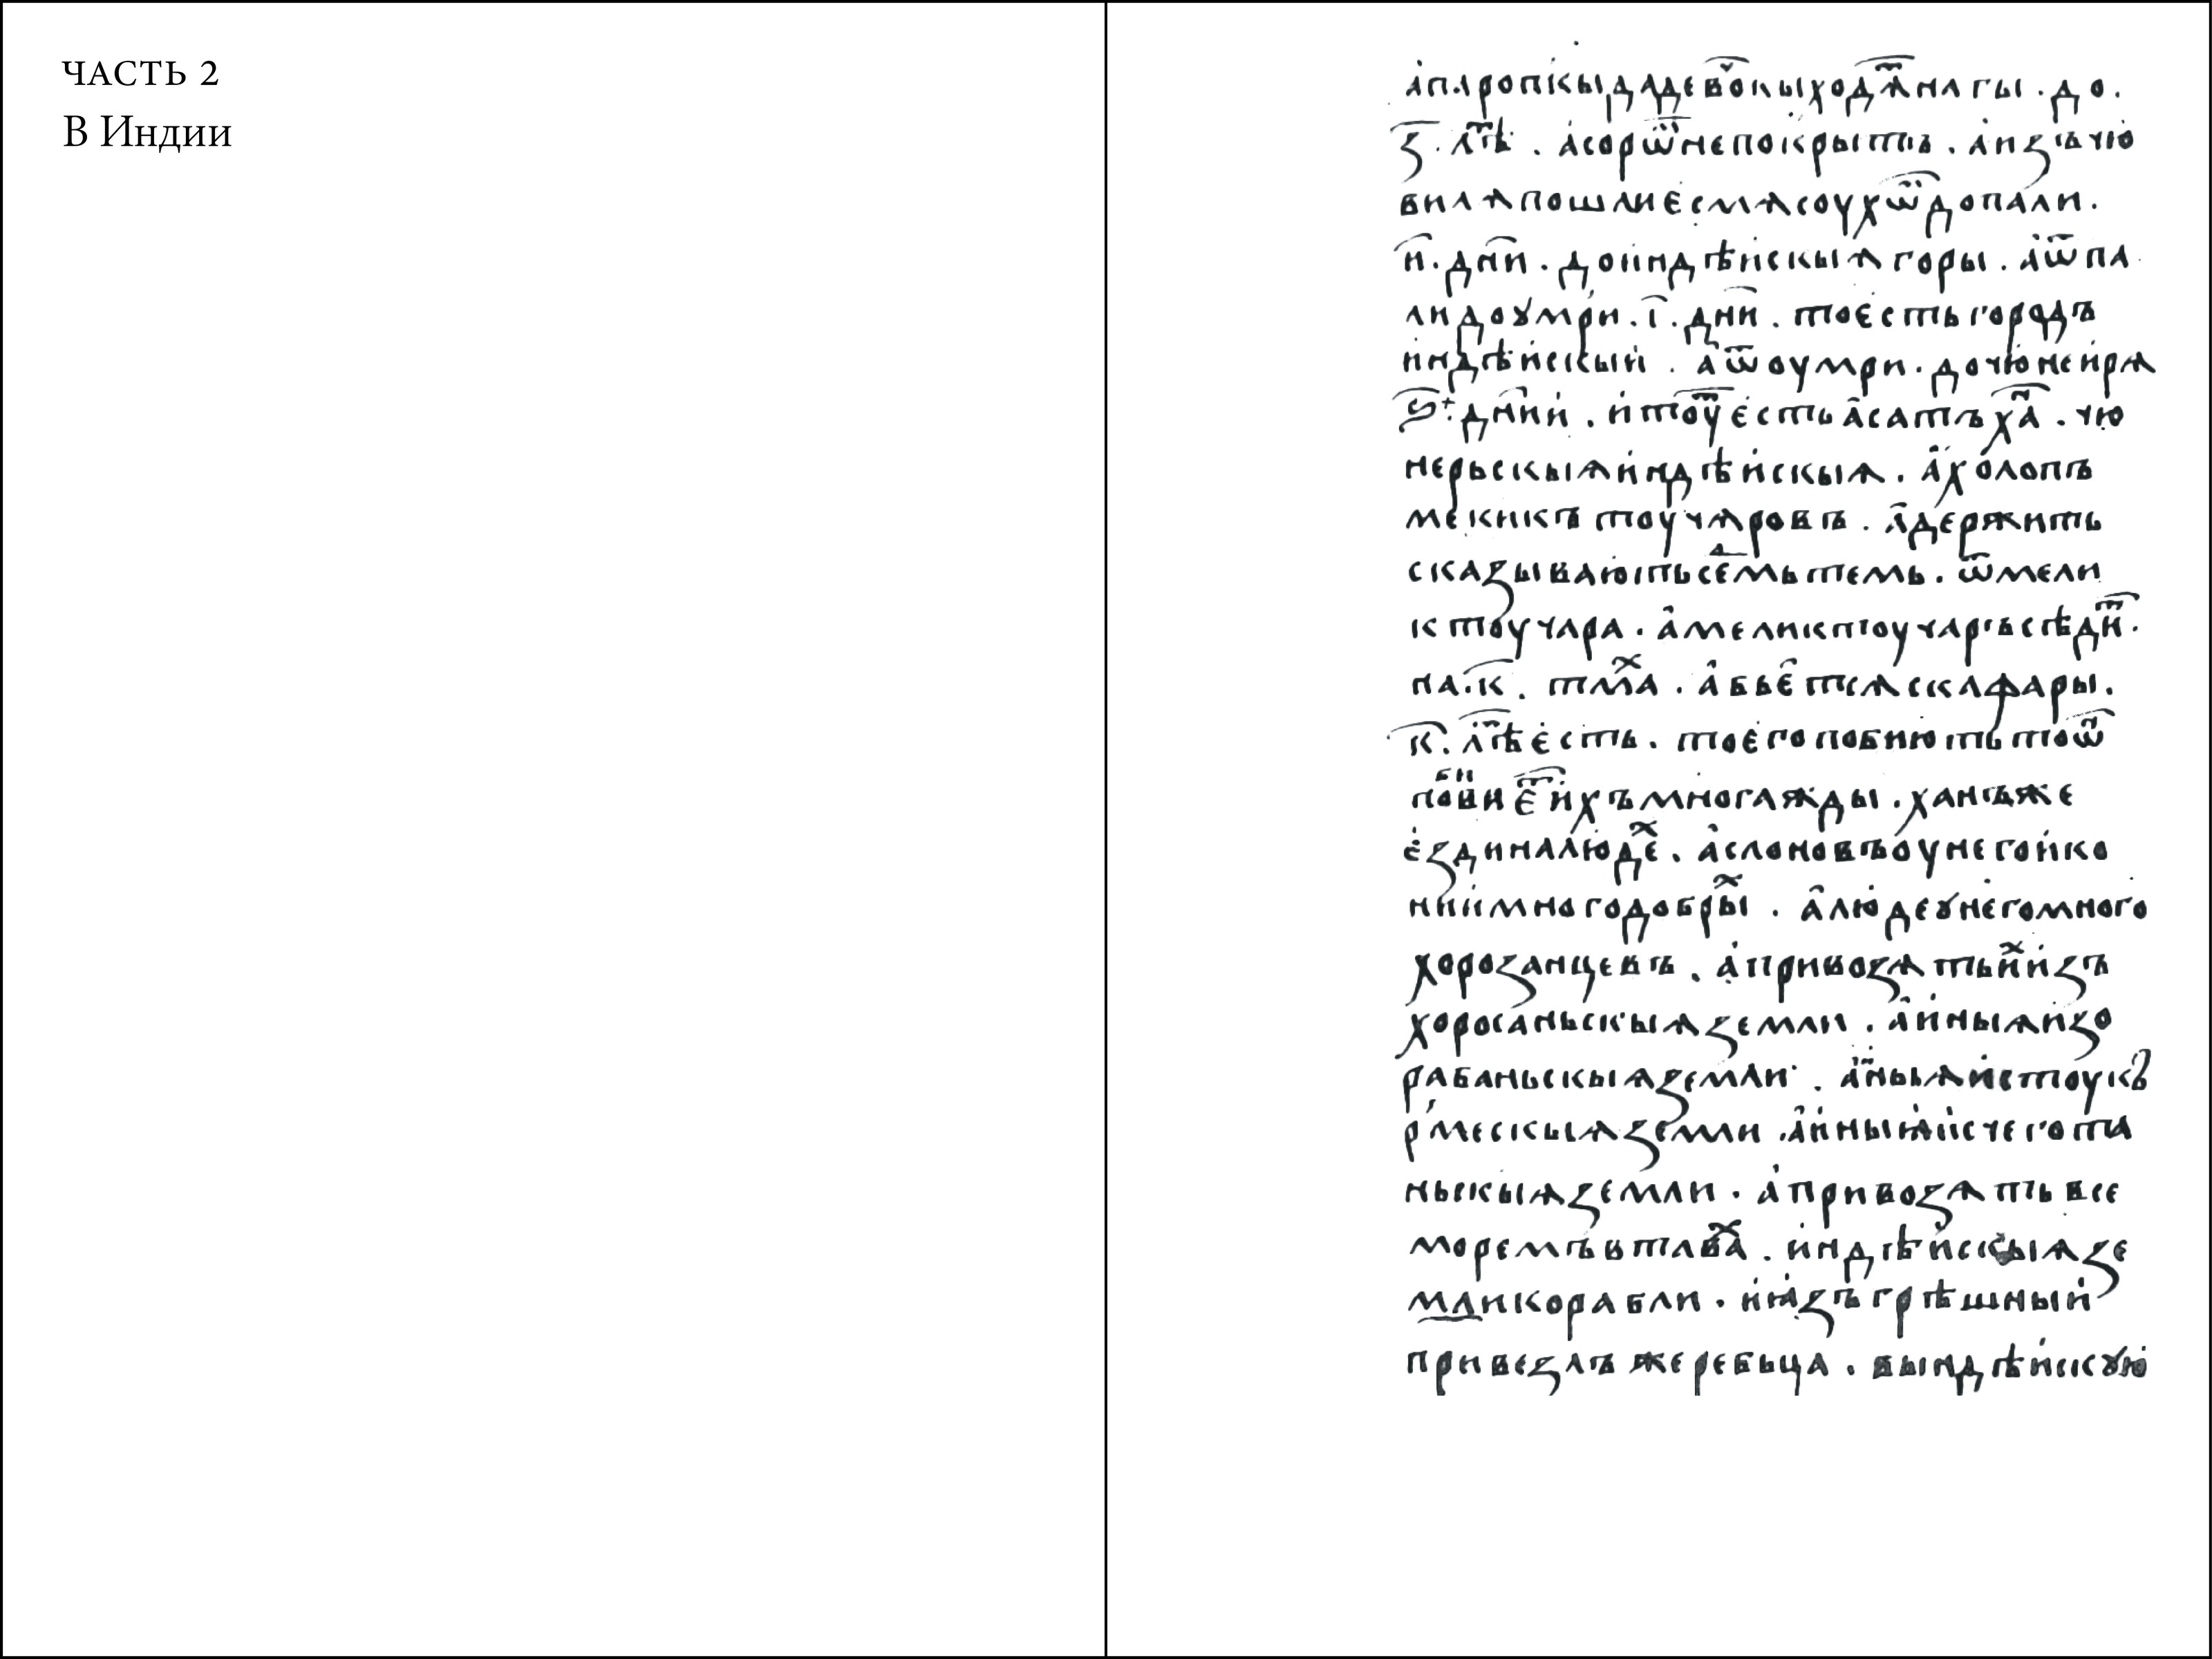 ЧАСТЬ 2
В Индии
а паропкы да девокы ходѧт нагы . до .
з҃ . лѣт . а соромъ не покрытъ . а изъ чю
вилѧ пошли есмѧ соухом до пали .
и҃ . дни . до индѣискыѧ горы . а ѿ па
ли до ꙋмри . і҃ . дни . то есть городъ
индѣискый . а ѿ оумри . до чюнеирѧ
ѕ҃ . дний . и тоут есть асатъ хан . чю
нерьскыѧ индѣискыѧ . а холопъ
меликътоучѧровъ . а держить
сказывають семь темь . ѿ мели
ктоучара . а меликтоучаръ сѣдит
на . к҃ . тмах . а бьетсѧ с кафары .
к҃ . лѣт есть . то его побиють то ѡн
побиваеть ихъ многажды . ханъ же
ездина людех . а слоновъ оу него и ко
ний много добрых . а люде ꙋ него много
хорозанцевъ . а привозѧть их изъ
хоросаньскыѧ земли . а иныѧ изо
рабаньскыѧ земли . а иныѧ ис тоукъ
рмескыѧ земли . а иныѧ ис чегота
ньскыѧ земли . а привозѧть все
моремъ в тавах . индѣискыѧ зе
мли корабли . и ꙗзъ грѣшный
привезлъ жеребьца . в ындѣискꙋю